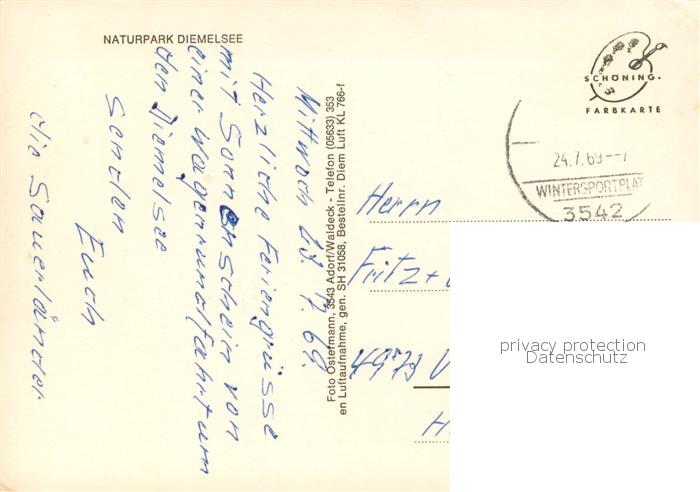 NATURPARK DIEMELSEE
Mittwoch 23.7.69.
Herzliche Feriengrüsse
mit Sonnenschein von
einer Wagenrundfahrt um
den Diemelsee
senden
Euch
die Sauerländer
Foto Ostermann, 3543 Adorf/Waldeck - Telefon (05633) 353
en Luftaufnahme, gen. SH 31058, Bestellnr. Diem Luft KL 766-f
SCHÖNING·
FARBKARTE
24.7.69--7
WINTERSPORTPLAT
3542
Herrn
Fritz +
4973 V
H
privacy protection
Datenschutz